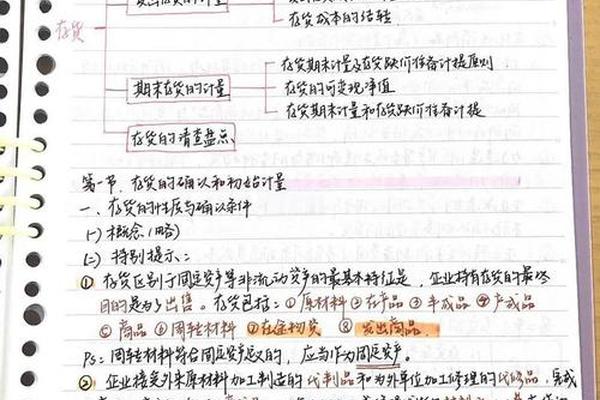 发出存货的计量
存货成本的结转
存货
存货期末计量及存货跌价准备计提原则
期末存货的计量
存货的可变现净值
存货期末计量和存货跌价准备计提
存货的清查盘点
第一节、存货的确认和初始计量
一、存货的性质与确认条件
(一) 概念 (略)
(二) 特别提示:
① 存货区别于固定资产等非流动资产的最基本特征是,企业持有存货的最终
目的是为了出售。存货包括:①原材料 ②在产品 ③半成品 ④产成品
⑤商品 ⑥周转材料 ⑦在途物资 ⑧发出商品.
Ps: 周转材料符合固定资产定义的,应当作为固定资产。
② 企业接受外来原材料加工制造的代制品和为外单位加工修理的代修品,